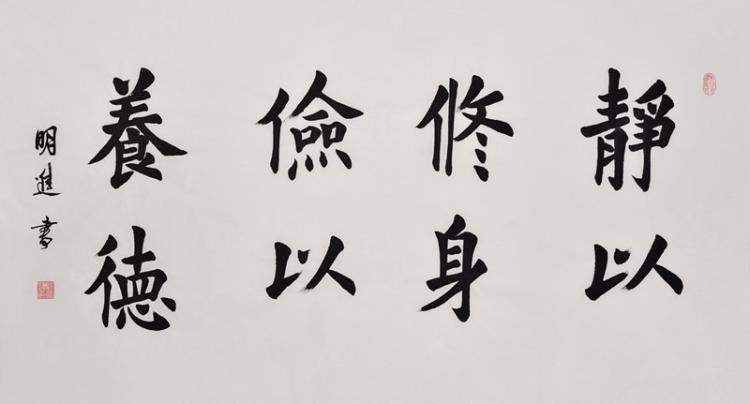 靜以
修身
儉以
養德
明進書